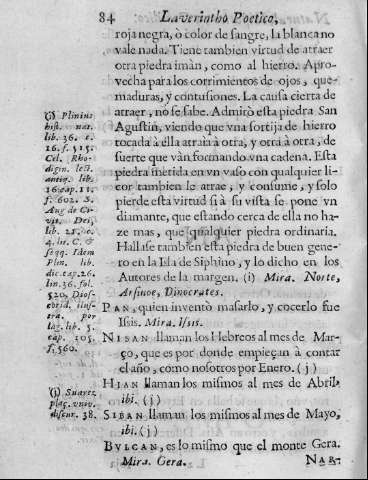 84 Laverintho Poetico,
roja negra, ò color de sangre, la blanca no
vale nada. Tiene tambien virtud de atraer
otra piedra imàn, como al hierro. Apro-
vecha para los corrimientos de ojos, que-
maduras, y contusiones. La causa cierta de
atraer, no se sabe. Admirò esta piedra San
Agustin, viendo que vna sortija de hierro
tocada à ella atraia à otra, y otra à otra, de
suerte que vàn formando vna cadena. Esta
piedra metida en vn vaso con qualquier li-
cor tambien le atrae, y consume, y solo
pierde esta virtud si à su vista se pone vn
diamante, que estando cerca de ella no ha-
ze mas, que qualquier piedra ordinaria.
Hallase tambien esta piedra de buen gene-
ro en la Isla de Siphino, y lo dicho en los
Autores de la margen. (i) Mira. Norte,
Arsinoe, Dinocrates.
PAN, quien inventò masarlo, y cocerlo fue
Issis. Mira. Issis.
NISAN llaman los Hebreos al mes de Mar-
ço, que es por donde empieçan à contar
el año, como nosotros por Enero. (j)
HIAN llaman los mismos al mes de Abril.
ibi. (j)
SIBAN llaman los mismos al mes de Mayo,
ibi. (j)
BVLCAN, es lo mismo que el monte Gera.
Mira. Gera.
NAR-
(i) Plinius
hist. nat.
lib. 36. c.
16. f. 515.
Cel. Rho-
digin. lect.
antiq. lib.
16. cap. 11.
f. 602. S.
Aug. de Ci-
vit. Dei,
lib. 21. c.
4. lit. C. &
seqq. Idem
Plen. lib.
dic. cap. 26.
lin. 36. fol.
520. Dios-
corid. ilus-
tra. por
lag. lib. 5.
cap. 105.
f. 560.
(j) Suarez
plaç. vniv.
discur. 38.